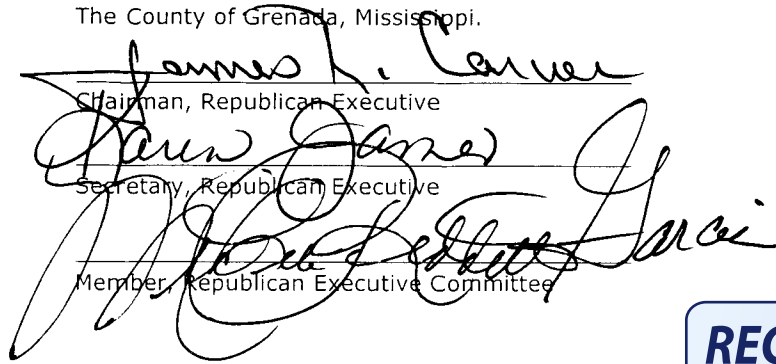 The County of Grenada, Mississippi.
James R. Carver
Chairman, Republican Executive
Karen James
Secretary, Republican Executive
Garcia
Member, Republican Executive Committee
REC